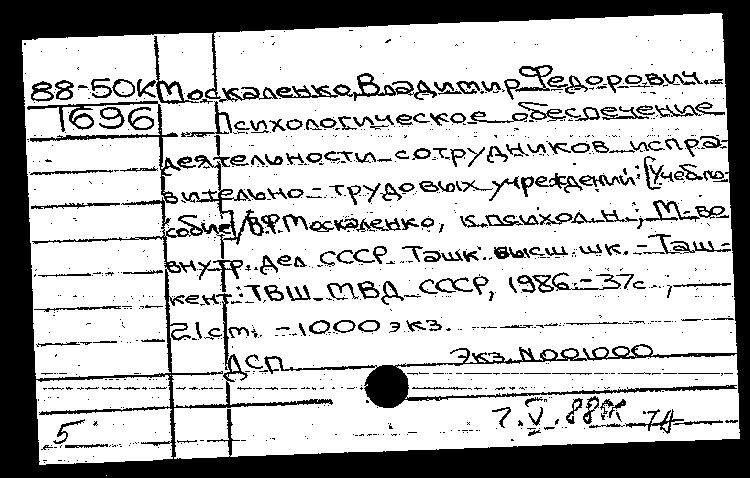 88-50К Москаленко, Владимир Федорович.
1696 Психологическое обеспечение
деятельности сотрудников испра-
вительно-трудовых учреждений: [Учеб. по-
собие] / В.Ф. Москаленко, к. психол. н.; М-во
внутр. дел СССР. Ташк. высш. шк. - Таш-
кент: ТВШ МВД СССР, 1986. - 37с.;
21 cm. - 1000 экз.
ДСП Экз. N 001000
5 7.V.88